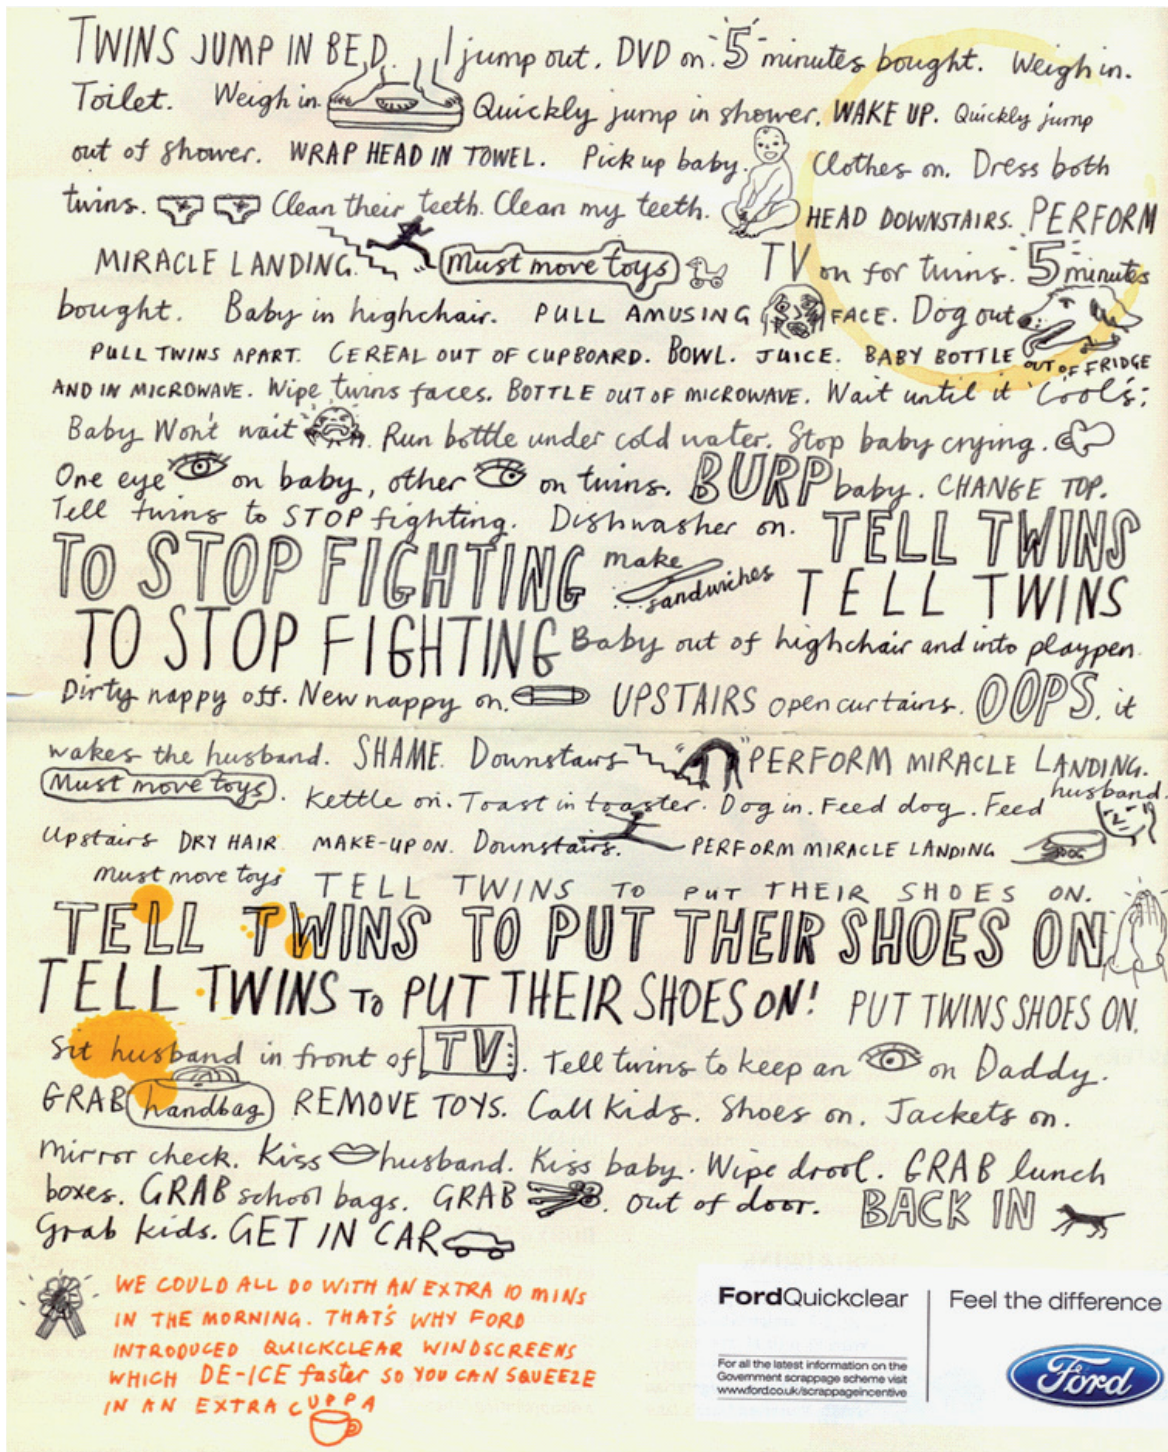 TWINS JUMP IN BED. I jump out. DVD on. 5 minutes bought. Weigh in.
Toilet. Weigh in. Quickly jump in shower. WAKE UP. Quickly jump
out of shower. WRAP HEAD IN TOWEL. Pick up baby. Clothes on. Dress both
twins. Clean their teeth. Clean my teeth. HEAD DOWNSTAIRS. PERFORM
MIRACLE LANDING. Must move toys TV on for twins. 5 minutes
bought. Baby in highchair. PULL AMUSING FACE. Dog out
PULL TWINS APART. CEREAL OUT OF CUPBOARD. BOWL. JUICE. BABY BOTTLE OUT OF FRIDGE
AND IN MICROWAVE. Wipe twins faces. BOTTLE OUT OF MICROWAVE. Wait until it cools.
Baby Won't wait. Run bottle under cold water. Stop baby crying.
One eye on baby, other on twins. BURP baby. CHANGE TOP.
Tell twins to STOP fighting. Dishwasher on. TELL TWINS
TO STOP FIGHTING make sandwiches TELL TWINS
TO STOP FIGHTING Baby out of highchair and into playpen.
Dirty nappy off. New nappy on. UPSTAIRS open curtains. OOPS, it
wakes the husband. SHAME. Downstairs PERFORM MIRACLE LANDING.
Must move toys. Kettle on. Toast in toaster. Dog in. Feed dog. Feed husband.
Upstairs DRY HAIR MAKE-UP ON. Downstairs. PERFORM MIRACLE LANDING DOG
must move toys TELL TWINS TO PUT THEIR SHOES ON.
TELL TWINS TO PUT THEIR SHOES ON
TELL TWINS TO PUT THEIR SHOES ON! PUT TWINS SHOES ON.
Sit husband in front of TV. Tell twins to keep an on Daddy.
GRAB handbag REMOVE TOYS. Call Kids. Shoes on. Jackets on.
mirror check. Kiss husband. Kiss baby. Wipe drool. GRAB lunch
boxes. GRAB school bags. GRAB. out of door. BACK IN
Grab kids. GET IN CAR
WE COULD ALL DO WITH AN EXTRA 10 MINS
IN THE MORNING. THAT'S WHY FORD
INTRODUCED QUICKCLEAR WINDSCREENS
WHICH DE-ICE faster SO YOU CAN SQUEEZE
IN AN EXTRA CUPPA
FordQuickclear
For all the latest information on the
Government scrappage scheme visit
www.ford.co.uk/scrappageincentive
Feel the difference
Ford